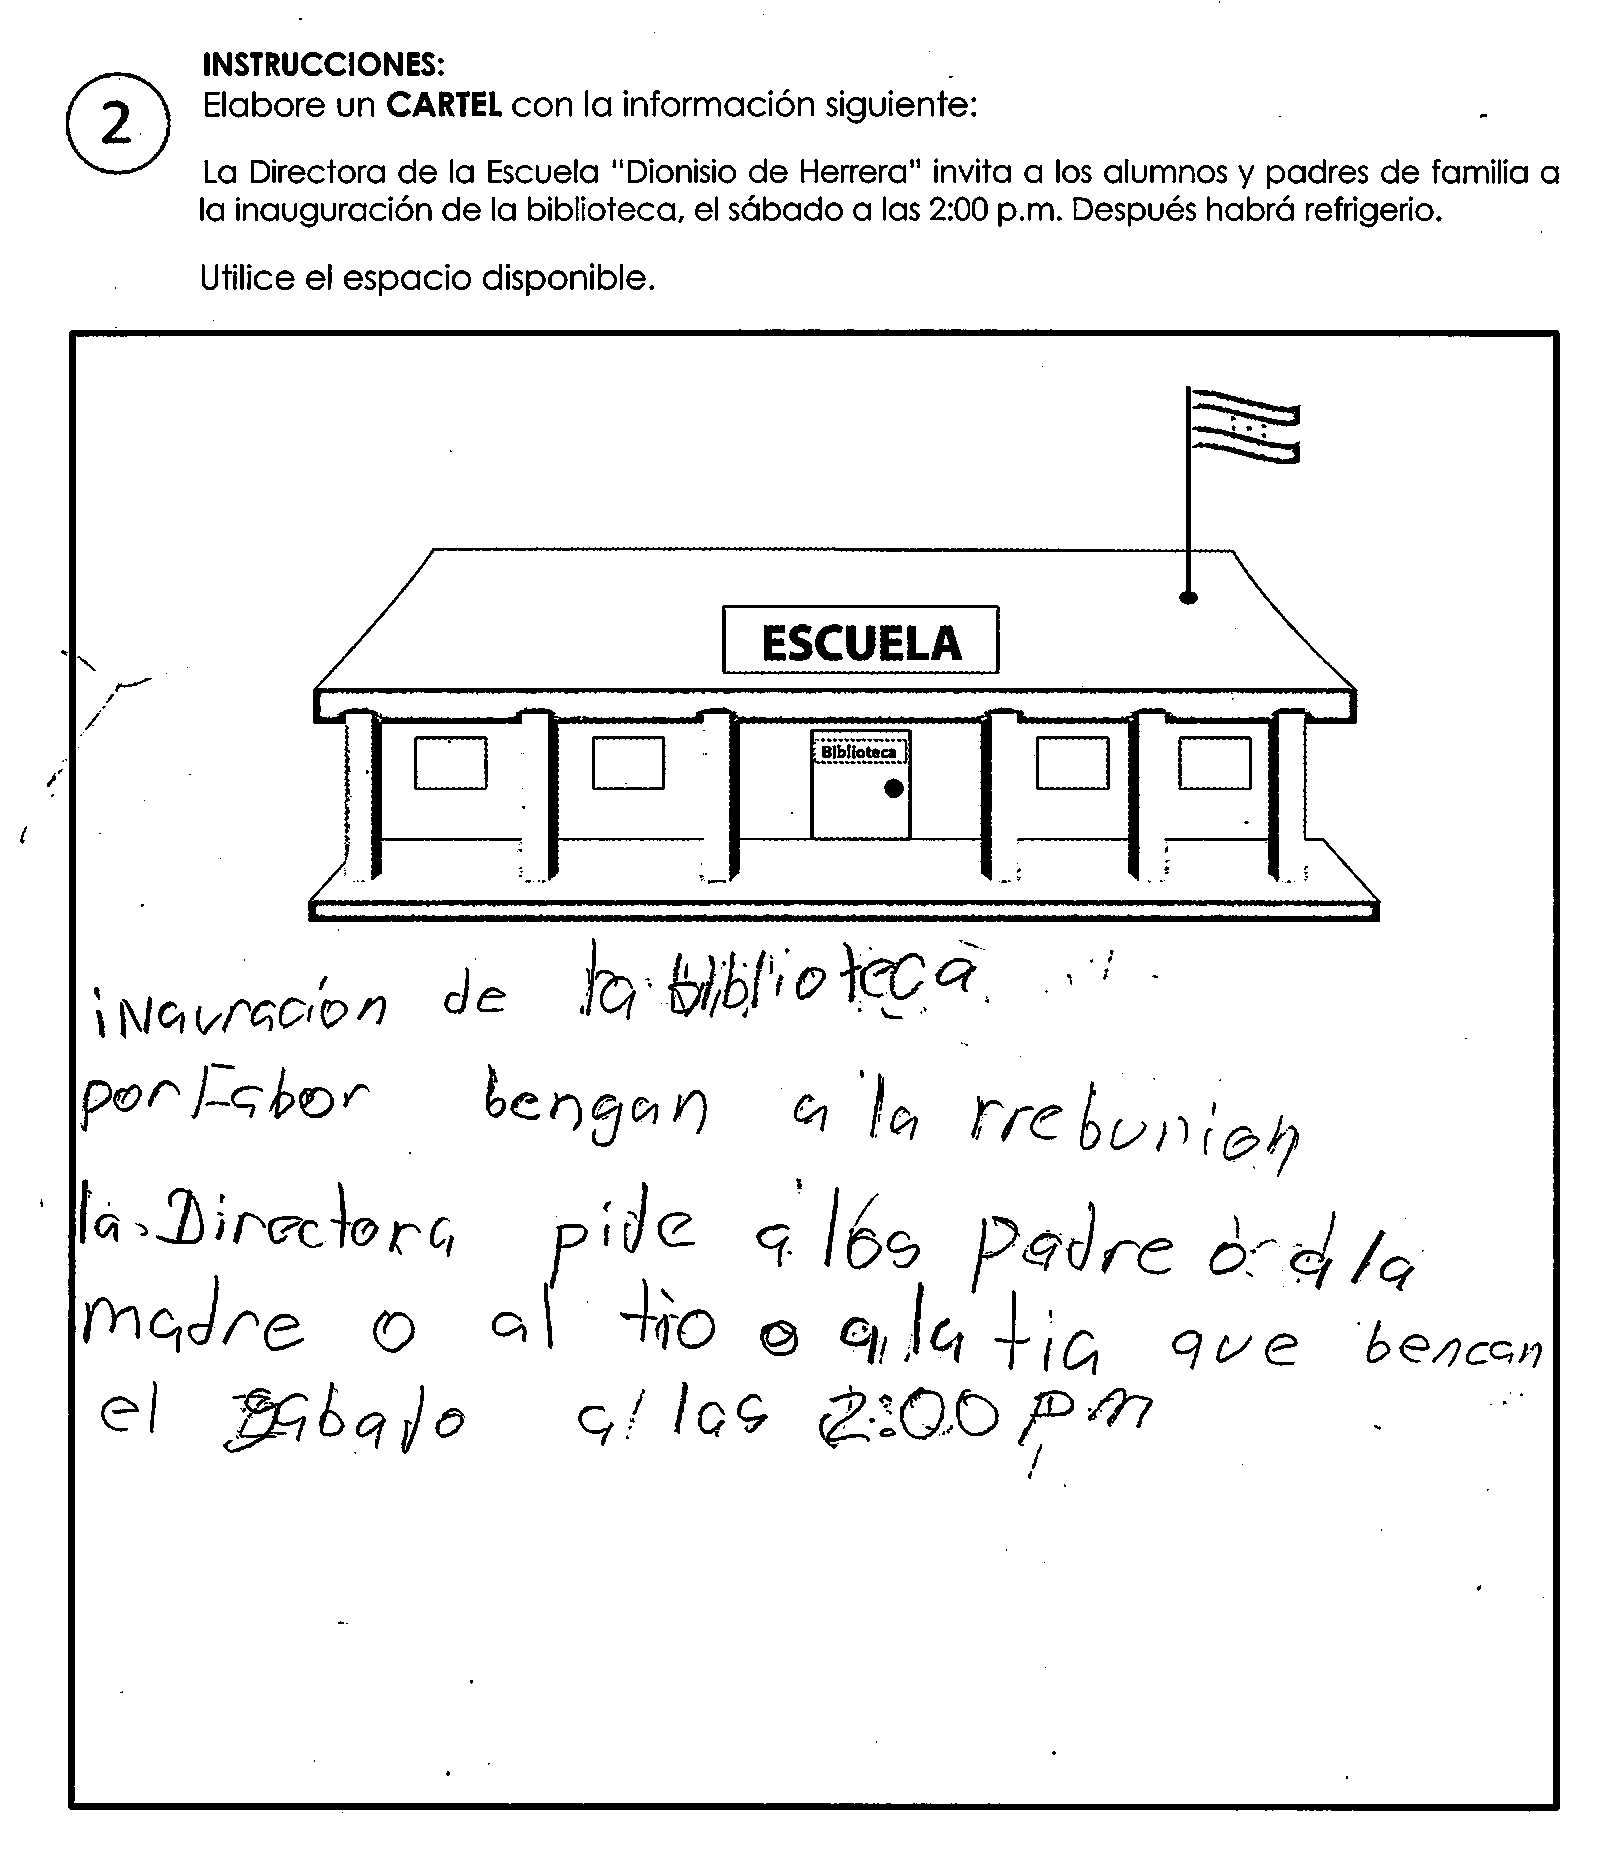 INSTRUCCIONES:
2
Elabore un CARTEL con la información siguiente:
La Directora de la Escuela "Dionisio de Herrera" invita a los alumnos y padres de familia a
la inauguración de la biblioteca, el sábado a las 2:00 p.m. Después habrá refrigerio.
Utilice el espacio disponible.
ESCUELA
Biblioteca
iNauración de la biblioteca
por Fabor bengan a la rrebunion
la Directora pide a los padre o a la
madre o al tio o a la tia que bencan
el sabado a las 2:00 pm